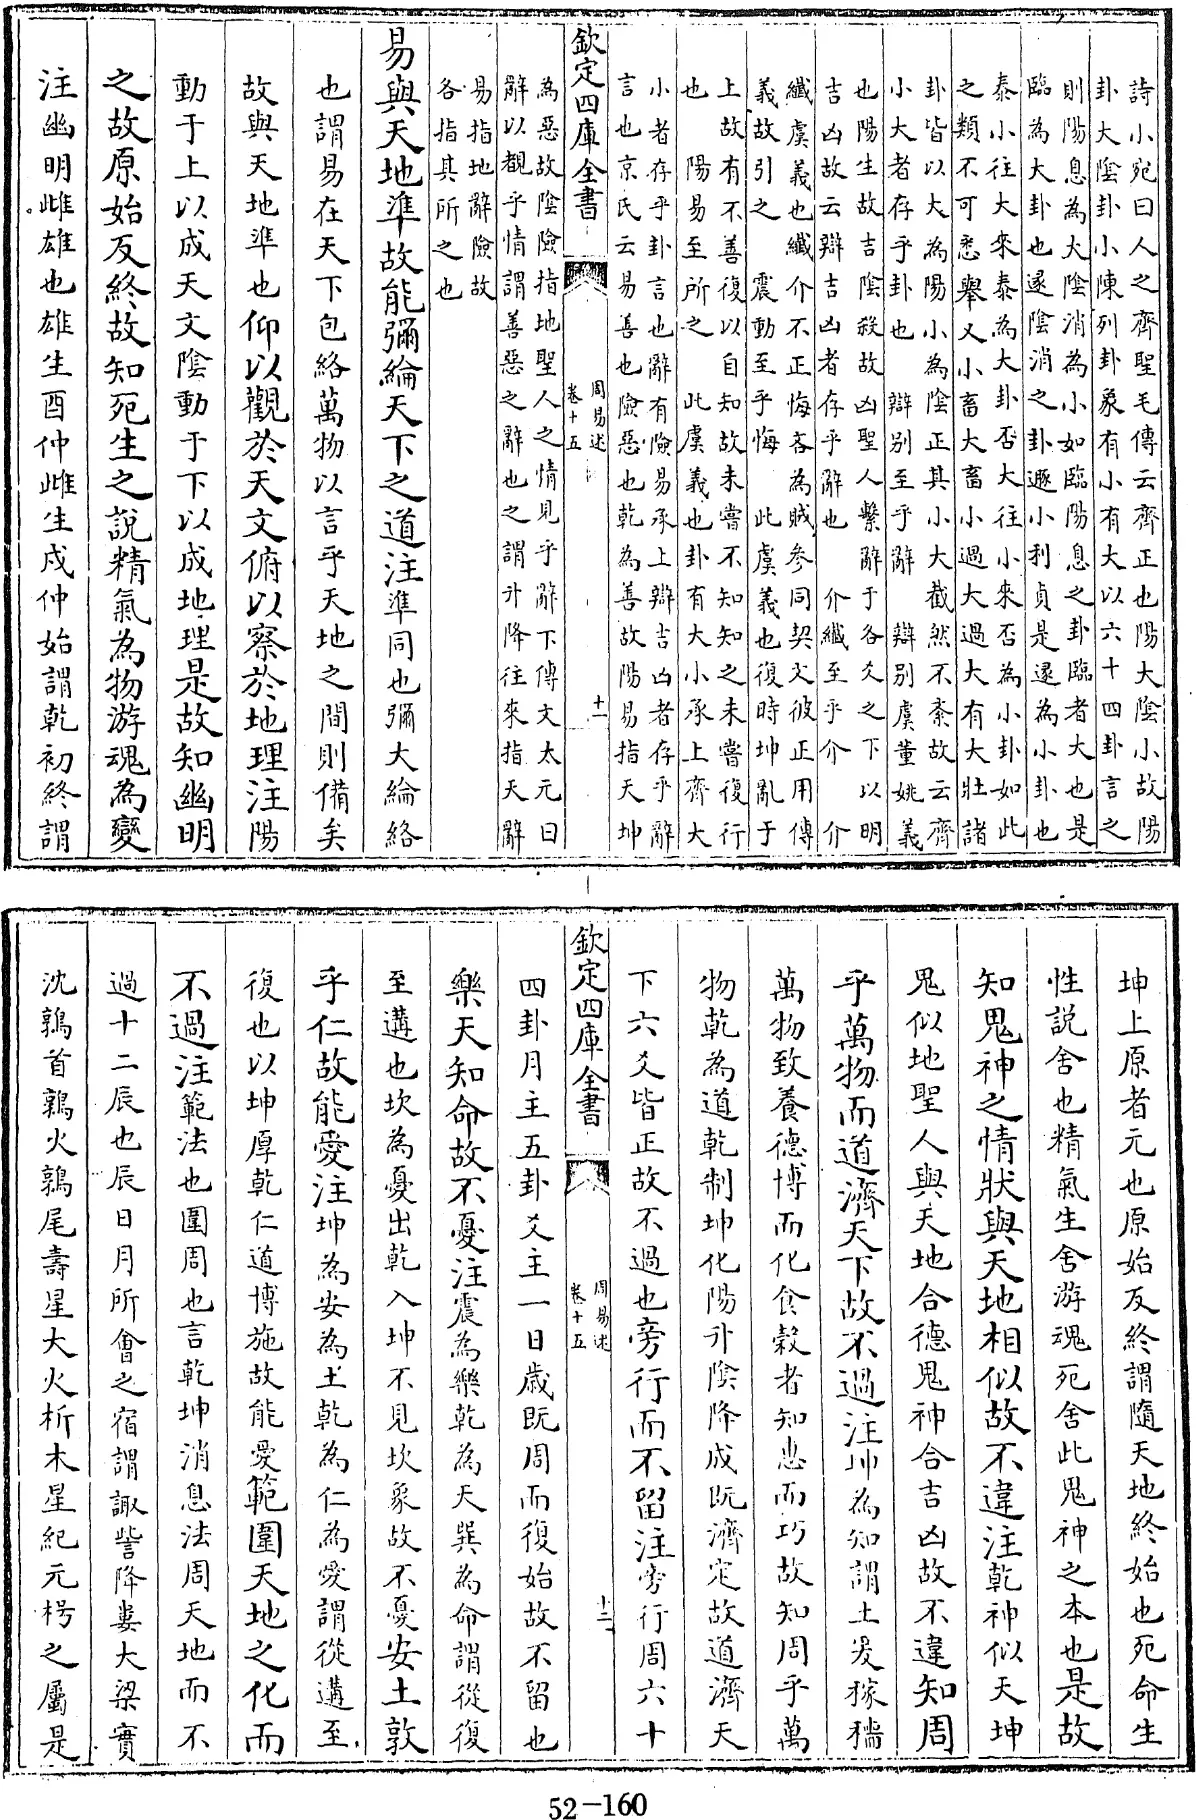 詩小宛曰人之齊聖毛傳云齊正也陽大陰小故陽
卦大陰卦小陳列卦象有小有大以六十四卦言之
則陽息為大陰消為小如臨陽息之卦臨者大也是
臨為大卦也遂陰消之卦遯小利貞是遂為小卦也
泰小往大來泰為大卦否大往小來否為小卦如此
之類不可悉舉又小畜大畜小過大過大有大壯諸
卦皆以大為陽小為陰正其小大截然不紊故云齊
小大者存乎卦也　辯別至乎辭　辯別虞董姚義
也陽生故吉陰殺故凶聖人繫辭于各爻之下以明
吉凶故云辯吉凶者存乎辭也　介纖至乎介　介
纖虞義也纖介不正悔吝為賊參同契文彼正用傳
義故引之　震動至乎悔　此虞義也復時坤亂于
上故有不善復以自知故未嘗不知知之未嘗復行
也　陽易至所之　此虞義也卦有大小承上齊大
小者存乎卦言也辭有險易承上辯吉凶者存乎辭
言也京氏云易善也險惡也乾為善故陽易指天坤
欽定四庫全書
周易述
卷十五
十一
為惡故陰險指地聖人之情見乎辭下傳文太元曰
辭以觀乎情謂善惡之辭也之謂升降往來指天辭
易指地辭險故
各指其所之也
易與天地準故能彌綸天下之道注準同也彌大綸絡
也謂易在天下包絡萬物以言乎天地之間則備矣
故與天地準也仰以觀於天文俯以察於地理注陽
動于上以成天文陰動于下以成地理是故知幽明
之故原始反終故知死生之說精氣為物游魂為變
注幽明雌雄也雄生酉仲雌生戌仲始謂乾初終謂
坤上原者元也原始反終謂隨天地終始也死命生
性説舍也精氣生舍游魂死舍此鬼神之本也是故
知鬼神之情狀與天地相似故不違注乾神似天坤
鬼似地聖人與天地合德鬼神合吉凶故不違知周
乎萬物而道濟天下故不過注坤為知謂土爰稼穡
萬物致養德博而化食穀者知惠而巧故知周乎萬
物乾為道乾制坤化陽升陰降成既濟定故道濟天
下六爻皆正故不過也旁行而不留注旁行周六十
欽定四庫全書
周易述
卷十五
十二
四卦月主五卦爻主一日歲既周而復始故不留也
樂天知命故不憂注震為樂乾為天巽為命謂從復
至遘也坎為憂出乾入坤不見坎象故不憂安土敦
乎仁故能愛注坤為安為土乾為仁為愛謂從遘至
復也以坤厚乾仁道博施故能愛範圍天地之化而
不過注範法也圍周也言乾坤消息法周天地而不
過十二辰也辰日月所會之宿謂諏訾降婁大梁實
沈鶉首鶉火鶉尾壽星大火析木星紀元枵之屬是
52-160